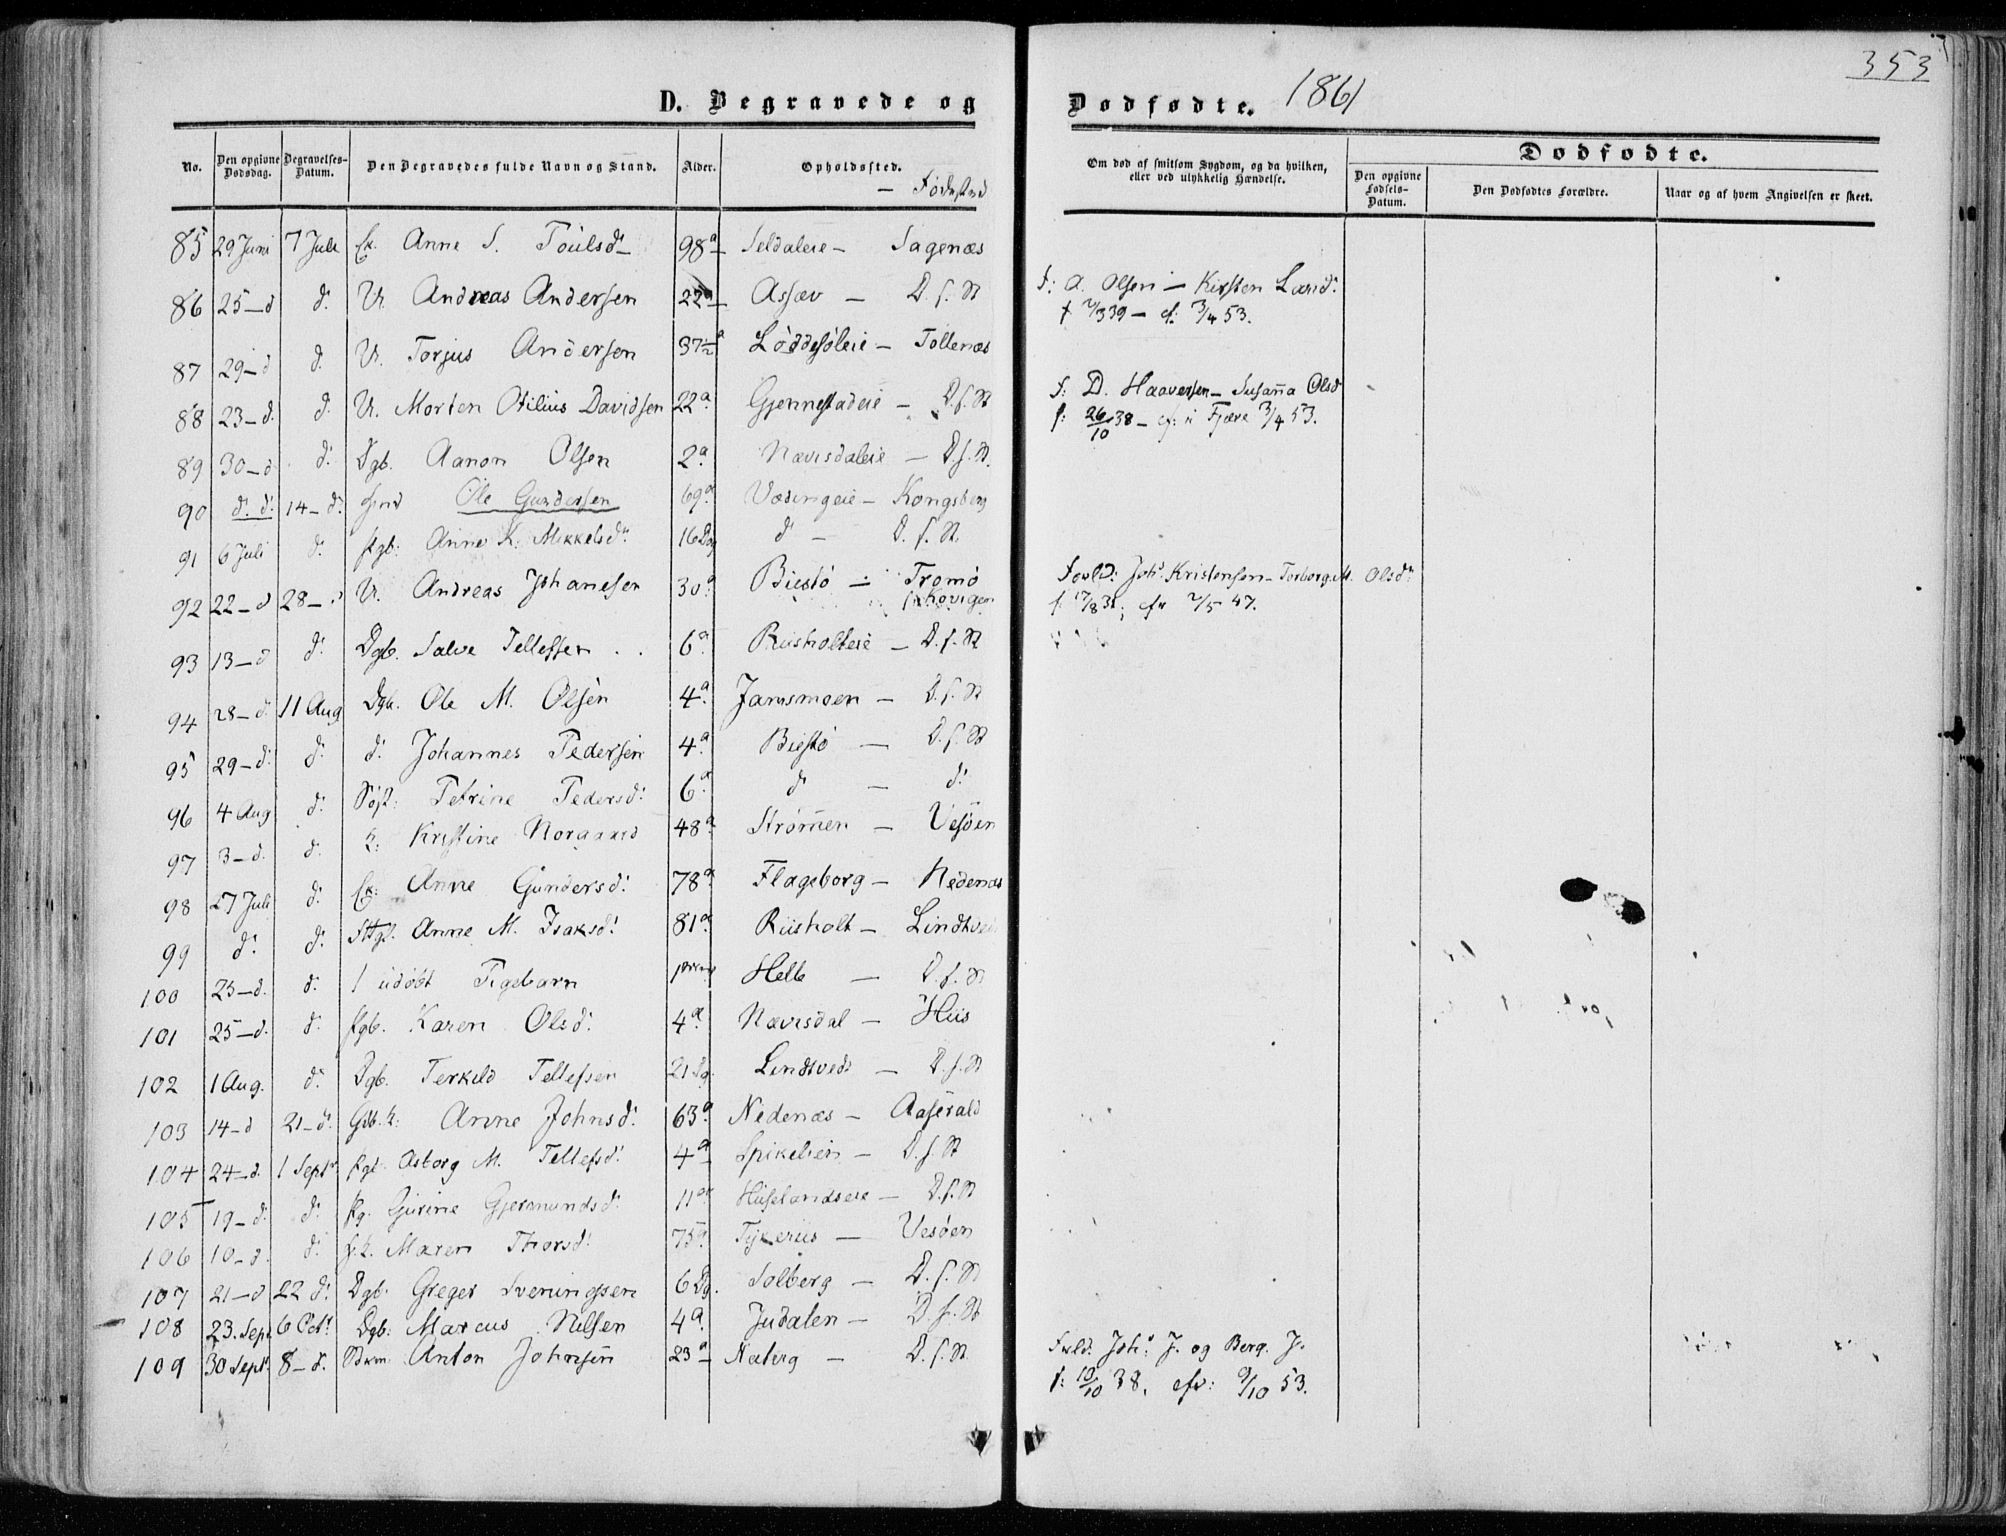 353
D. Begravede og Dødfødte. 1861
No. Den opgivne Dødsdag. Begravelses-Datum. Den Begravedes fulde Navn og Stand. Alder. Opholdssted. — Födested
Om død af smitsom Sygdom, og da hvilken, eller ved ulykkelig Hændelse. Dødfødte. Den opgivne Fødsels-Datum. Den Dødfødtes Forældre. Naar og af hvem Angivelsen er skeet.
85 29 Juni 7 Juli Anne S. Toulsd. 98 a Seldaleie — Sagenæs
86 25 — d d. U. Andreas Andersen 22 a Assæv — D. s. St f: A. Olsen — Kirsten Land:
f 2/3 39 — cf: 3/4 53.
87 29 — d d. U. Torjus Andersen 37½ a Løddesøleie — Tollenæs
88 23 — d. d. U. Morten Otilius Davidsen 22 a Gjennestadeie — D. s. St f: D. Haaversen — Susaña Olsd
f: 26/10 38 — cf: i Fjære 3/4 53.
89 30 — d d. Dgb. Aanon Olsen 2 a Nævisdaleie — D. s. St.
90 d. d. 14 — d. Ole Gundersen 69 a Vædingeie — Kongsberg
91 6 Juli d. pgb: Anne K. Mikkelsd. 16 Dg d — D. s. St.
92 22 — d 28 — d U. Andreas Johanesen 30 a Biestø — Tromö Forld: Joh. Kristensen — Torborg M. Olsd.
f: 17/8 31; cfr 2/5 47.
93 13 — d d. Dgb. Salve Tellefsen 6 a Riisholteie — D. s. St
94 28 — d. 11 Aug Dgb. Ole M. Olsen 4 a Jamsmoen — D. s. St
95 29 — d. d. d. Johannes Pedersen 4 a Biestø — D. s. St
96 4 Aug d. Petrine Pedersd. 6 a d — d.
97 3 — d. d. K: Kristine Norgaard 48 a Strømen — Vesøen
98 27 Juli d. Anne Gundersd. 78 a Flageborg — Nedenæs
99 d. d. Anne M. Isaksd. 81 a Riisholt — Lindtveid
100 25 — d. d. 1 udøbt Pigebarn Helle — D. s. St
101 25 — d. d. pgb. Karen Olsd. 4 a Nævisdal — Hiis
102 1 Aug. d. Dgb. Terkild Tellefsen 21 Dg. Lindtveds — D. s. St
103 14 — d 21 — d. Gdb. K: Anne Johnsd. 63 a Nedenæs — Aaserald
104 24 — d. 1 Septr. pgb. Asborg M. Tellefsd. 4 a Spikelien — D. s. St
105 19 — d. d. pg. Gurine Gjermundsd. 11 Huselandseie — D. s. St
106 10 — d. d. Maren Thorsd. 75 a — Vesøen
107 21 — d 22 d. Dgb. Greger Sveningsen 6 Dg. Solberg — D. s. St
108 23. Sept. 6 Octr. Dgb: Marcus Nilsen 4 a. Judalen — D. s. St
109 30 Sept. 8 — d. Anton Johnsen 23 a — D. s. St Forld. Joh. J. og Berg. J.
f: 10/10 38. cfr: 9/10 53.